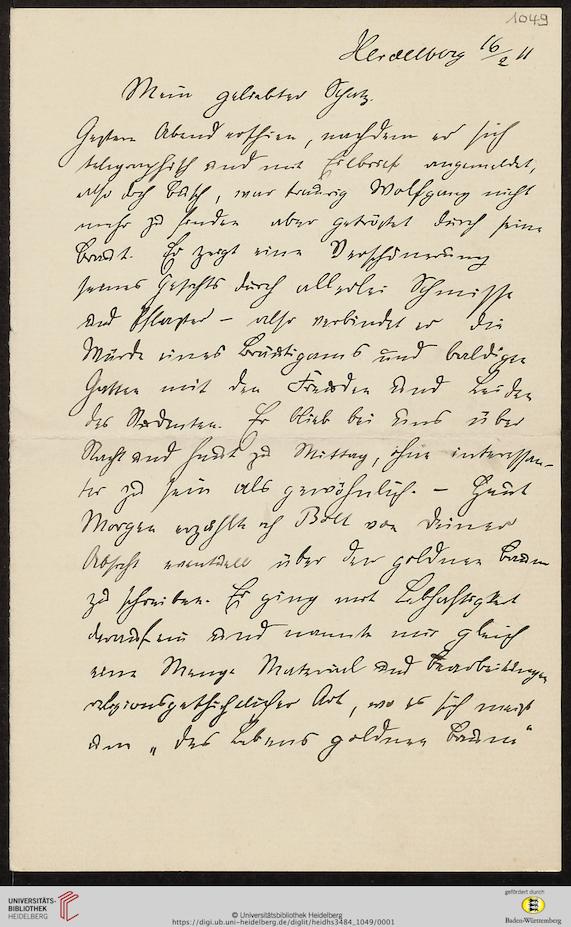 1049
Heidelberg 16/2 11
Mein geliebter Schatz.
Gestern Abend erschien, nachdem er sich
telegraphisch und mit Eilbrief angemeldet,
also doch Busch, war traurig Wolfgang nicht
mehr zu finden aber getröstet durch seine
Braut. Er zeigt eine Verschönerung
seines Gesichts durch allerlei Schmisse
und Pflaster – also verbindet er die
Würde eines Bräutigams und baldigen
Gatten mit den Freuden und Leiden
des Studenten. Er blieb bei uns über
Nacht und heute zu Mittag, ohne interessan-
ter zu sein als gewöhnlich. – Heut
Morgen erzählte ich Boll von Deiner
Absicht eventuell über den goldnen Baum
zu schreiben. Er ging mit Lebhaftigkeit
darauf ein und nannte mir gleich
eine Menge Material und Bearbeitungen
religionsgeschichtlicher Art, wo es sich meist
um „des Lebens goldnen Baum“
UNIVERSITÄTS-
BIBLIOTHEK
HEIDELBERG
© Universitätsbibliothek Heidelberg
https://digi.ub.uni-heidelberg.de/diglit/heidhs3484_1049/0001
gefördert durch
Baden-Württemberg